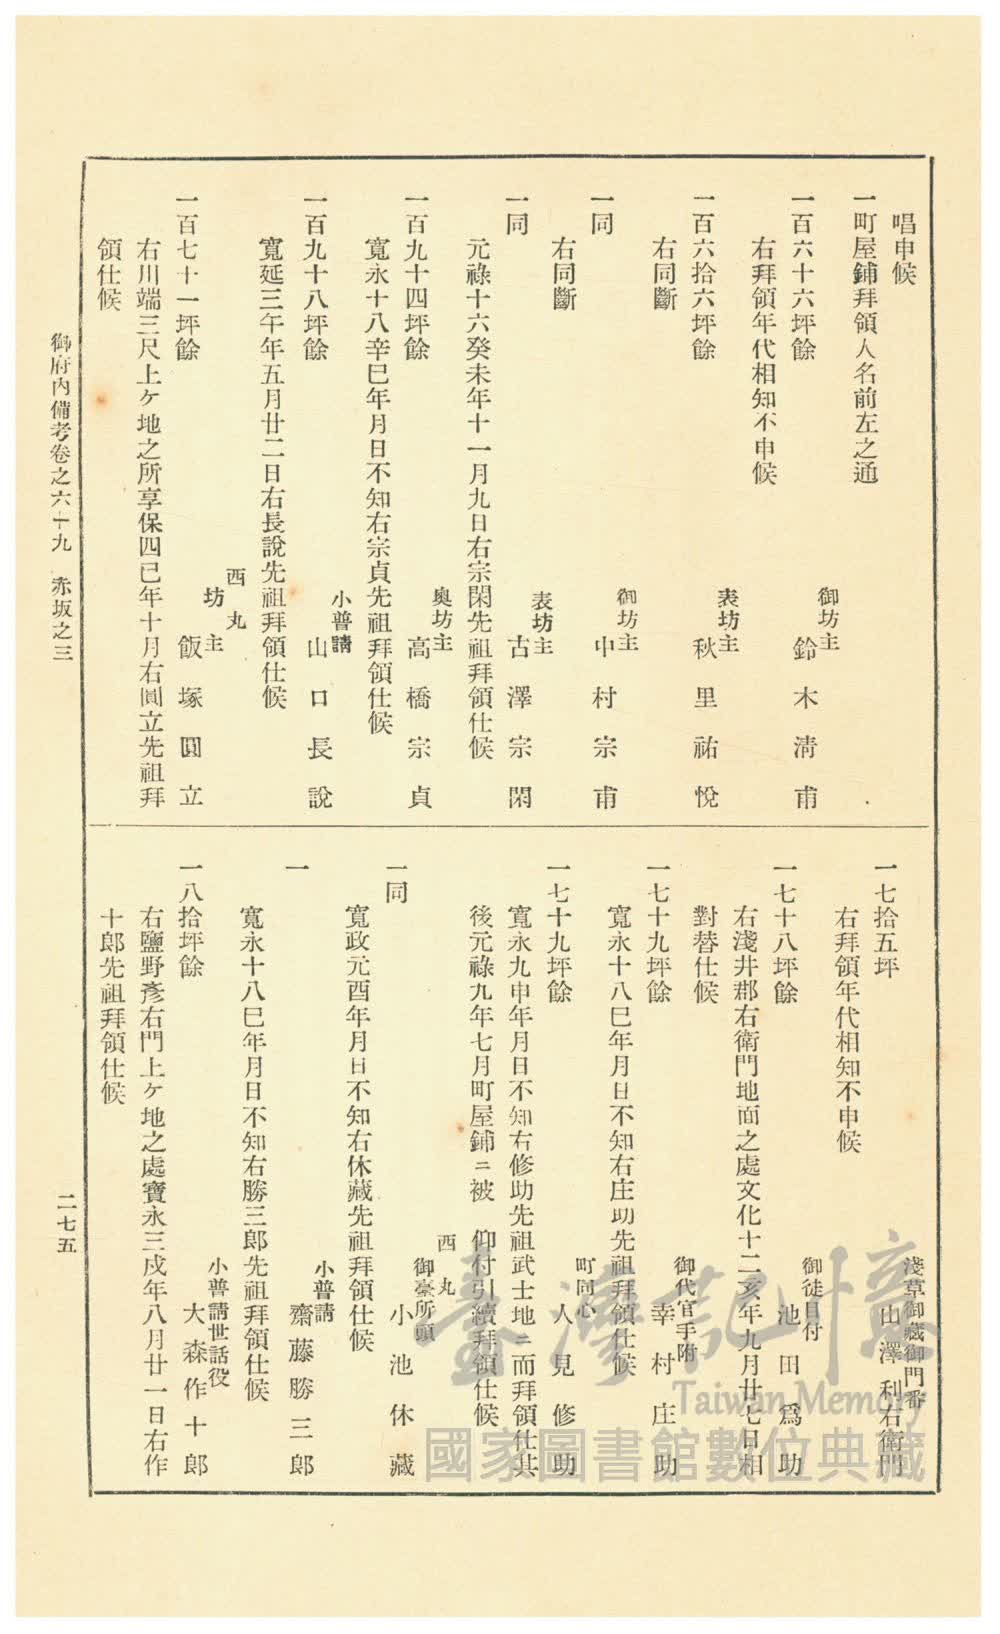 唱申候
一町屋鋪拜領人名前左之通
一百六十六坪餘
御坊主
鈴木淸甫
右拜領年代相知不申候
一百六拾六坪餘
表坊主
秋里祐悅
右同斷
一同
御坊主
中村宗甫
右同斷
一同
表坊主
古澤宗閑
元祿十六癸未年十一月九日右宗閑先祖拜領仕候
一百九十四坪餘
奧坊主
高橋宗貞
寬永十八辛巳年月日不知右宗貞先祖拜領仕候
一百九十八坪餘
小普請
山口長說
寬延三午年五月廿二日右長說先祖拜領仕候
一百七十一坪餘
西丸
坊主
飯塚圓立
右川端三尺上ケ地之所享保四巳年十月右圓立先祖拜
領仕候
一七拾五坪
淺草御藏御門番
山澤利右衞門
右拜領年代相知不申候
一七十八坪餘
御徒目付
池田爲助
右淺井郡右衞門地面之處文化十二亥年九月廿七日相
對替仕候
一七十九坪餘
御代官手附
幸村庄助
寬永十八巳年月日不知右庄助先祖拜領仕候
一七十九坪餘
町同心
人見修助
寬永九申年月日不知右修助先祖武士地ニ而拜領仕其
後元祿九年七月町屋鋪ニ被 仰付引續拜領仕候
一同
西丸
御臺所頭
小池休藏
寬政元酉年月日不知右休藏先祖拜領仕候
一
小普請
齋藤勝三郎
寬永十八巳年月日不知右勝三郎先祖拜領仕候
一八拾坪餘
小普請世話役
大森作十郎
右鹽野彥右門上ケ地之處寶永三戌年八月廿一日右作
十郎先祖拜領仕候
御府內備考卷之六十九 赤坂之三
二七五
臺灣記憶
Taiwan Memory
國家圖書館數位典藏